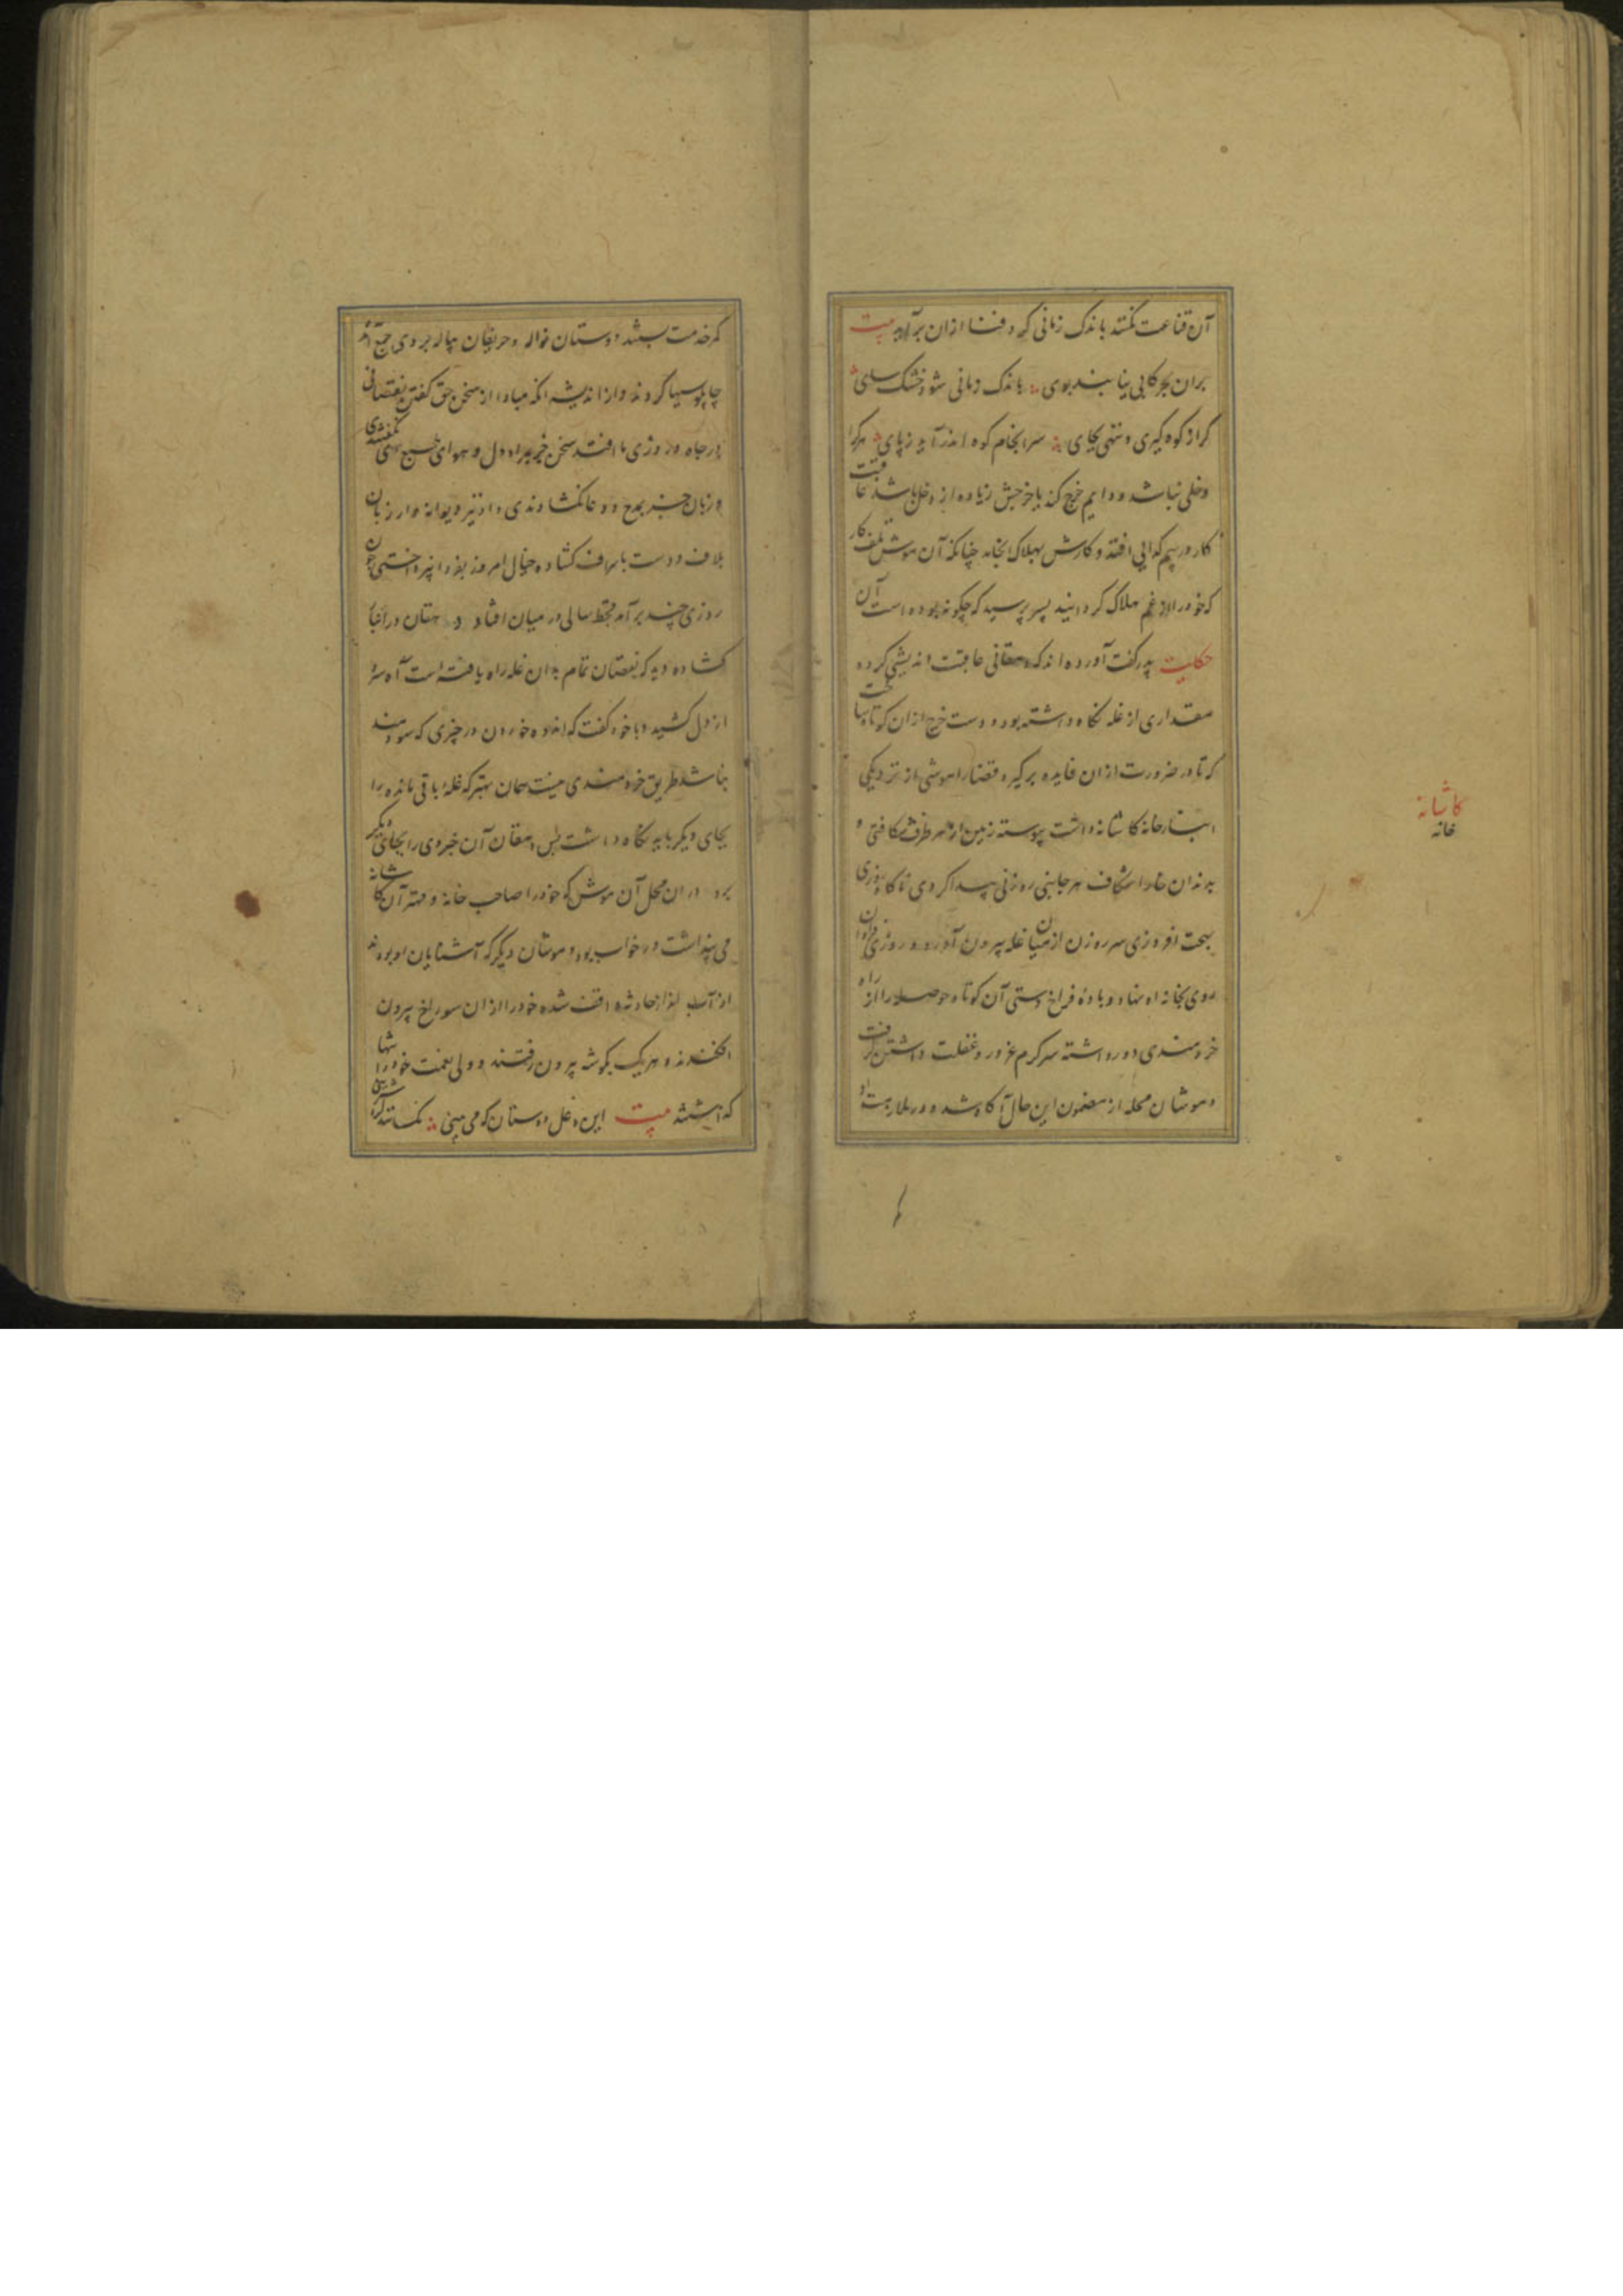 آن قناعت نکند باندک زمانی گرد فنا ازان برآید بیت
بران بحر کابی نیابد بوی باندک زمانی شود خشک پی
گر از کوه گیری و ننهی بجای سرانجام کوه اندر آید زپای هرکرا
دخلی نباشد و دایم خرج کند یا خرجش زیاده از دخل باشد عاقبت
کار در سیم گدایی افتد و کارش بهلاک انجامد چنانکه آن موش تلف کار
که خود را از غم هلاک گردانید پسر پرسید که چگونه بوده است آن
حکایت پدر گفت آورده اند که دهقانی عاقبت اندیشی کرده
مقداری از غله نگاه داشته بود و دست خرج ازان کوتاه ساخت
که تا در ضرورت ازان فایده برگیرد قضا را موشی از نزدیکی
انبارخانه کاشانه داشت پیوسته زمین از هر طرف شکافتی و
بدندان خارا شکاف هر جانبی روزنی پیدا کردی ناگاه روزی
سر روزن از میان غله بیرون آورد و روزی فراوان
روی بخانه او نهاد و باده فراخ دستی آن کوتاه حوصله را از راه
خردمندی دور داشته سرگرم غرور و غفلت داشتن گرفت
و موشان محله از مضمون این حال آگاه شد و در ملازمت او
کاشانه
خانه
کمر خدمت بستند دوستان نواله و حریفان پیاله بر وی جمع آمد
چاپلوسیها کردند و از اندیشه آنکه مبادا از سخن حق گفتن نقصانی
در جاه و روزی ما افتد سخن جز بمراد دل و هوای طبع وی نگفتندی
و زبان جز بمدح و دعا نگشادندی و او نیز دیوانه وار زبان
بلاف و دست باسراف گشاده خیال امروز بفردا نپرداختی چون
روزی چند برآمد قحط سالی در میان افتاد دهقان در انبار
گشاده دید که نقصان تمام بدان غله راه یافته است آه سرد
از دل کشید و با خود گفت که اندوه خوردن در چیزی که سودمند
نباشد طریق خردمندی نیست همان بهتر که غله باقی مانده را
بجای دیگر باید نگاه داشت پس دهقان آن جزوی را بجای دیگر
برد دران محل آن موش که خود را صاحب خانه و مهتر آن کاشانه
می پنداشت در خواب بود و موشان دیگر که آشنایان او بودند
ازان حادثه واقف شده خود را ازان سوراخ بیرون
افکندند و هر یک بگوشه بیرون رفتند و ولی نعمت خود را تنها
گذاشتند بیت این دغل دوستان که می بینی مگسانند گرد شیرینی